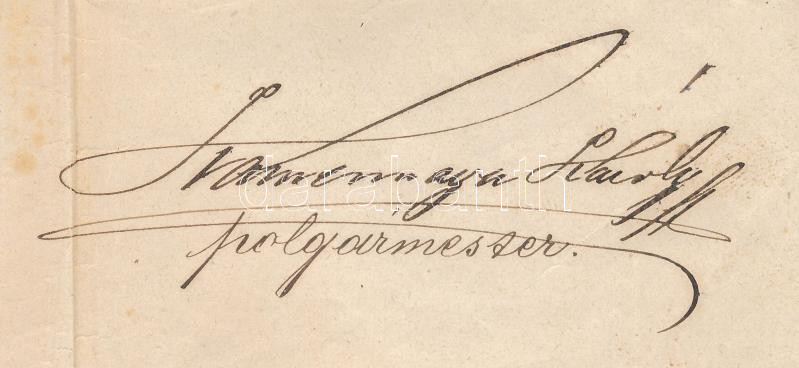 Kamermayer Károly
polgármester.
darabanth